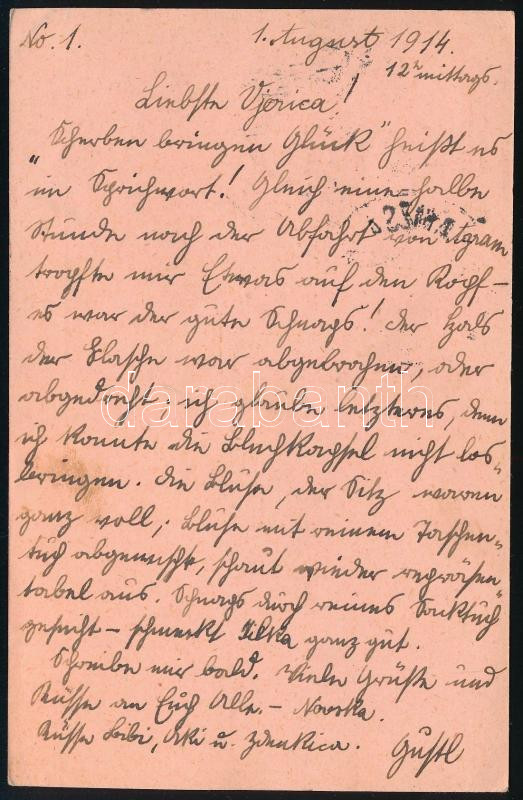 No. 1. 1. August 1914.
12h mittags.
Liebste Vjerica!
"Scherben bringen Glück" heißt es
im Sprichwort! Gleich eine halbe
Stunde nach der Abfahrt von Agram
tropfte mir Etwas auf den Kopf –
es war der gute Schnaps! der Hals
der Flasche war abgebrochen, oder
abgedreht; ich glaube letzteres, denn
ich konnte die Blechkapsel nicht los-
bringen. Die Blüse, der Sitz waren
ganz voll; Blüse mit reinem Taschen-
tuch abgewischt, schaut wieder repräsen-
tabel aus. Schnaps durch reines Sacktuch
geseicht – schmeckt Ilka ganz gut.
Schreibe mir bald. Viele Grüße und
Küsse an Euch Alle. – Novska.
Küsse Bibi, Aki u. Zdenkica. Gustl
darabanth